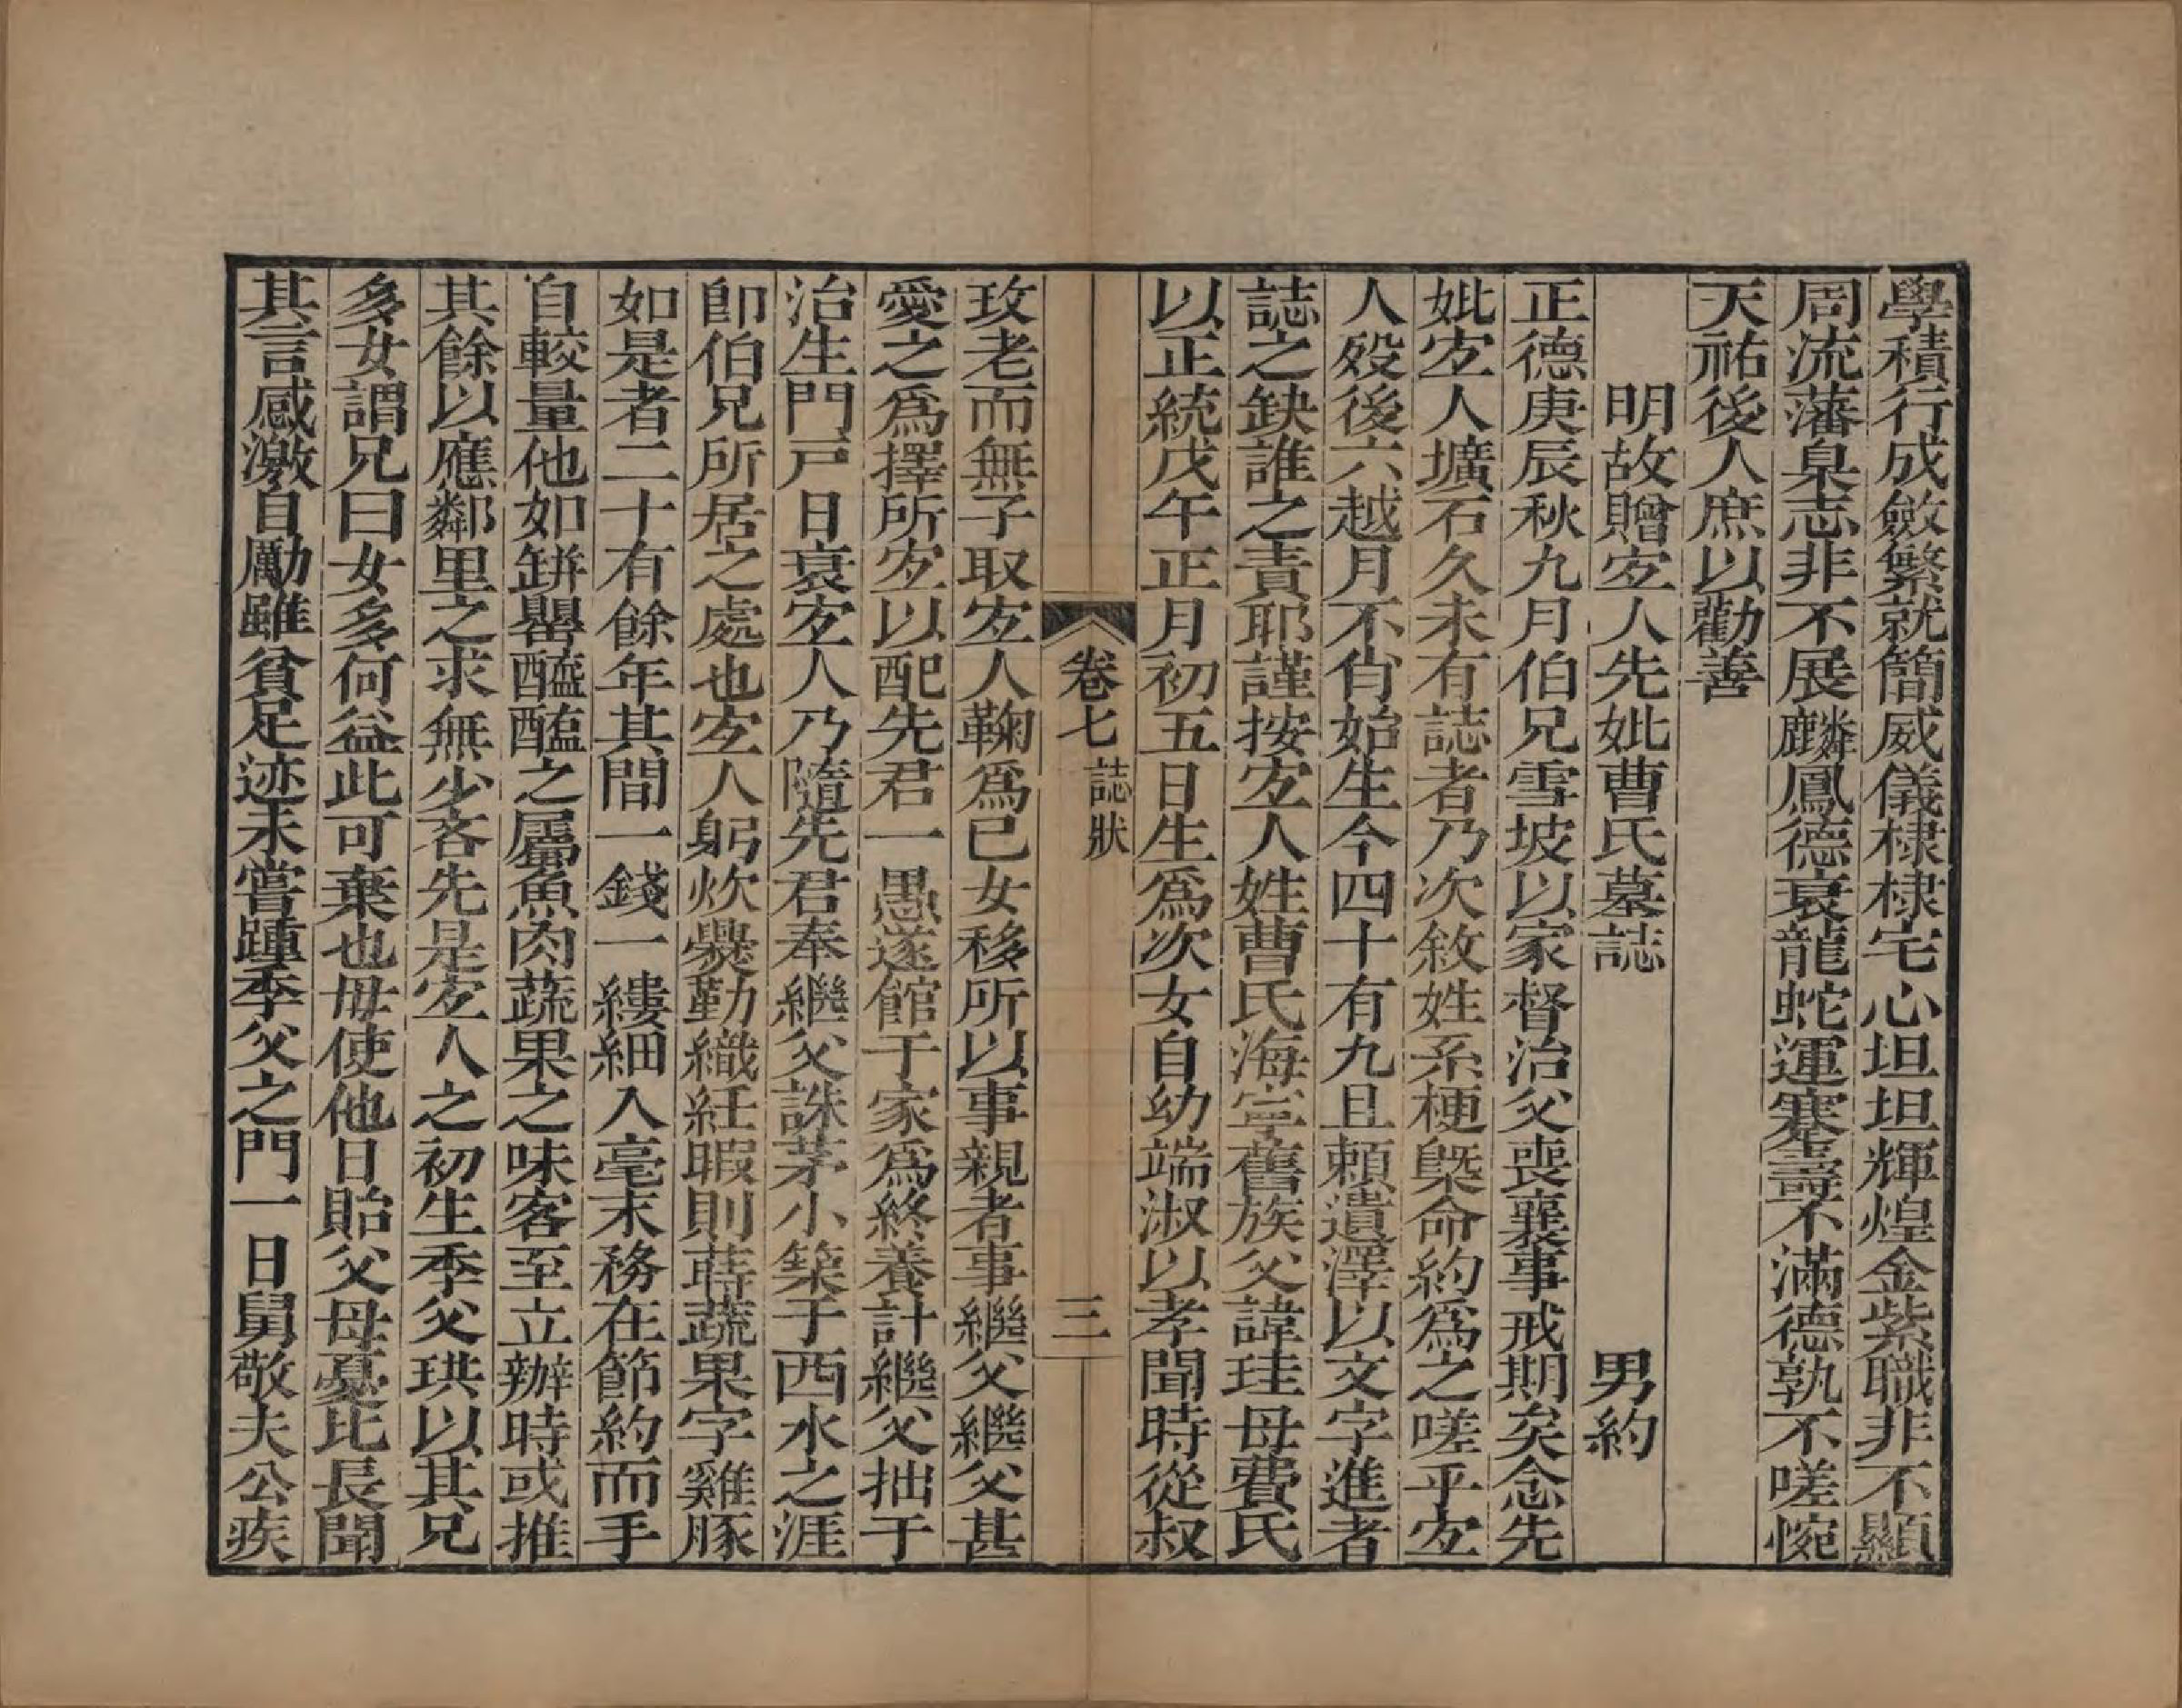 學積行成斂繁就簡威儀棣棣宅心坦坦輝煌金紫職非不顯
周流藩臬志非不展麟鳳德衰龍蛇運蹇壽不滿德孰不嗟惋
天祐後人庶以勸善
明故贈宜人先妣曹氏墓誌 男約
正德庚辰秋九月伯兄雪坡以家督治父喪襄事戒期矣念先
妣宜人壙石久未有誌者乃次敘姓系梗槩命約爲之嗟乎宜
人歿後六越月不肖始生今四十有九且頼遺澤以文字進者
誌之缺誰之責耶謹按宜人姓曹氏海寧舊族父諱珪母費氏
以正統戊午正月初五日生爲次女自幼端淑以孝聞時從叔
卷七 誌狀 三
玫老而無子取宜人鞠爲已女移所以事親者事繼父繼父甚
愛之爲擇所宜以配先君一愚遂館于家爲終養計繼父拙于
治生門戸日衰宜人乃隨先君奉繼父誅茅小築于西水之涯
卽伯兄所居之處也宜人躬炊爨勤織紝暇則蒔蔬果字雞豚
如是者二十有餘年其間一錢一縷細入毫末務在節約而手
自較量他如缾罌醯醢之屬魚肉蔬果之味客至立辦時或推
其餘以應鄰里之求無少吝先是宜人之初生季父珙以其兄
多女謂兄曰女多何益此可棄也毋使他日貽父母憂比長聞
其言感激自勵雖貧足迹未嘗踵季父之門一日舅敬夫公疾